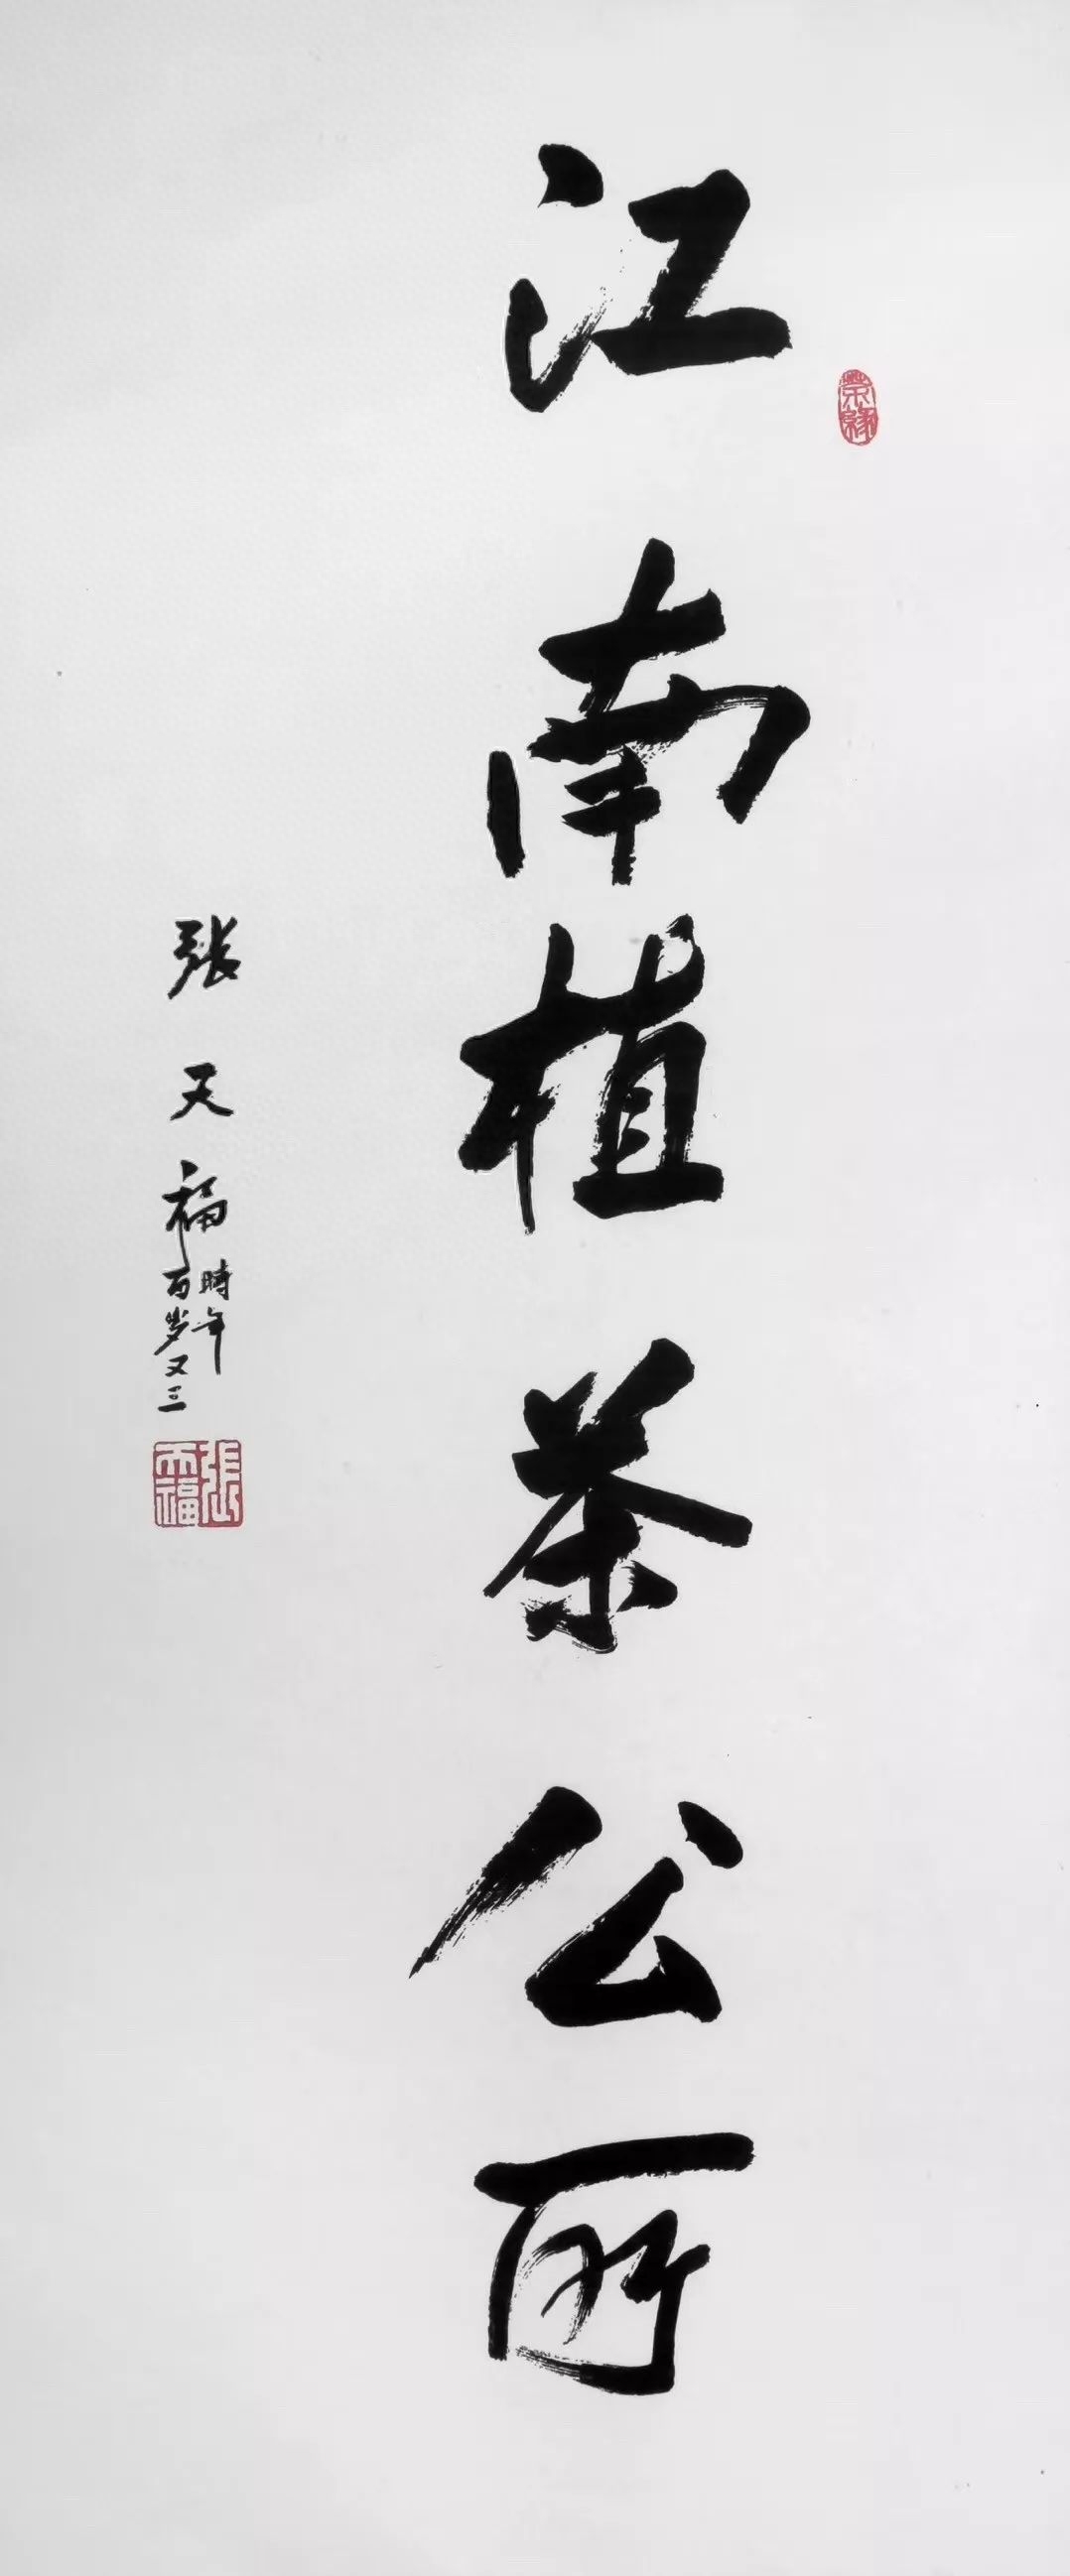 江南植茶公所
張天福
時年
百岁又三
茶缘
張天福